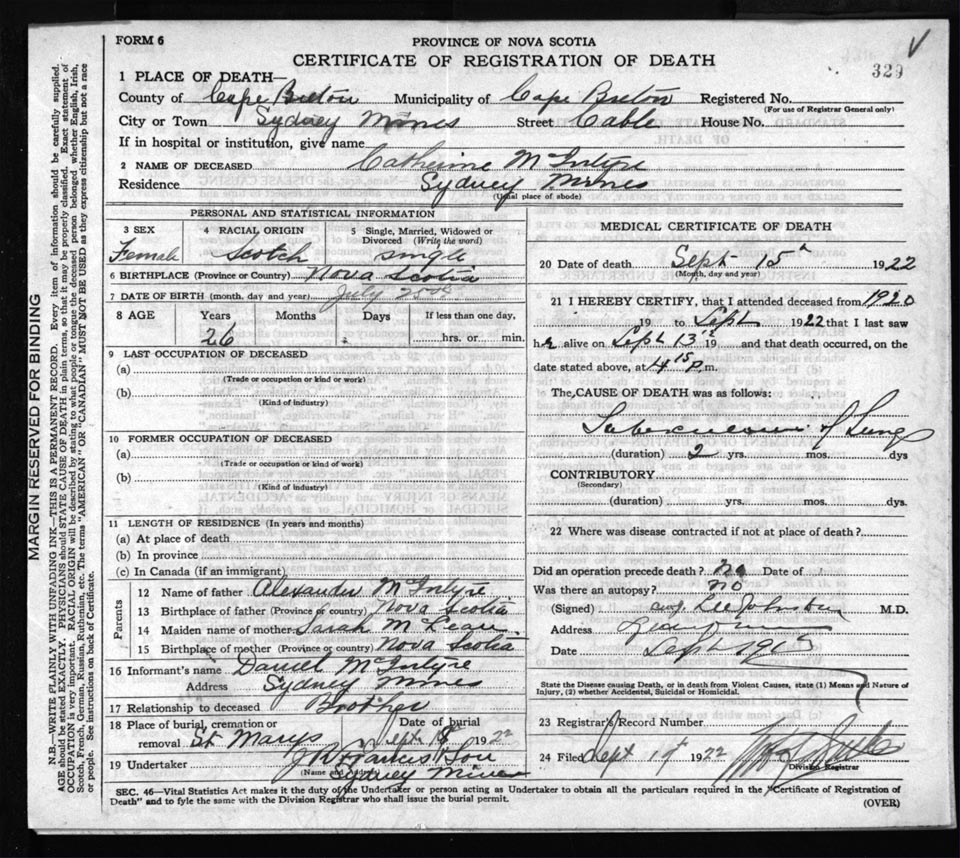 FORM 6
PROVINCE OF NOVA SCOTIA
CERTIFICATE OF REGISTRATION OF DEATH
329
1 PLACE OF DEATH—
County of Cape Breton Municipality of Cape Breton Registered No.
(For use of Registrar General only)
City or Town Sydney Mines Street Cable House No.
If in hospital or institution, give name
2 NAME OF DECEASED Catherine McIntyre
Residence Sydney Mines
(Usual place of abode)
PERSONAL AND STATISTICAL INFORMATION
3 SEX 4 RACIAL ORIGIN 5 Single, Married, Widowed or Divorced (Write the word)
Female Scotch Single
6 BIRTHPLACE (Province or Country) Nova Scotia
7 DATE OF BIRTH (month, day and year) July 25th
8 AGE Years Months Days If less than one day,
26 hrs. or min.
9 LAST OCCUPATION OF DECEASED
(a)
(Trade or occupation or kind or work)
(b)
(Kind of industry)
10 FORMER OCCUPATION OF DECEASED
(a)
(Trade or occupation or kind or work)
(b)
(Kind of industry)
11 LENGTH OF RESIDENCE (In years and months)
(a) At place of death
(b) In province
(c) In Canada (if an immigrant)
Parents
12 Name of father Alexander McIntyre
13 Birthplace of father (Province or country) Nova Scotia
14 Maiden name of mother Sarah McLean
15 Birthplace of mother (Province or country) Nova Scotia
16 Informant's name Daniel McIntyre
Address Sydney Mines
17 Relationship to deceased Brother
18 Place of burial, cremation or Date of burial
removal St Marys Sept 18 1922
19 Undertaker & Son
(Name and Address) Sydney Mines
MEDICAL CERTIFICATE OF DEATH
20 Date of death Sept 15th 1922
(Month, day and year)
21 I HEREBY CERTIFY, that I attended deceased from 1920
19 to Sept 1922 that I last saw
her alive on Sept 13 19 and that death occurred, on the
date stated above, at 4 15 P.m.
The CAUSE OF DEATH was as follows:
Tuberculosis of Lungs
(duration) 2 yrs. mos. dys
CONTRIBUTORY
(Secondary)
(duration) yrs. mos. dys.
22 Where was disease contracted if not at place of death?
Did an operation precede death? No Date of
Was there an autopsy? No
(Signed) M.D.
Address
Date Sept
State the Disease causing Death, or in death from Violent Causes, state (1) Means and Nature of
Injury, (2) whether Accidental, Suicidal or Homicidal.
23 Registrar's Record Number
24 Filed Sept 19 1922
Division Registrar
SEC. 46—Vital Statistics Act makes it the duty of the Undertaker or person acting as Undertaker to obtain all the particulars required in the "Certificate of Registration of
Death" and to fyle the same with the Division Registrar who shall issue the burial permit.
(OVER)
MARGIN RESERVED FOR BINDING
N.B.—WRITE PLAINLY WITH UNFADING INK—THIS IS A PERMANENT RECORD. Every item of information should be carefully supplied.
AGE should be stated EXACTLY. PHYSICIANS should STATE CAUSE OF DEATH in plain terms, so that it may be properly classified. Exact statement of
OCCUPATION is very important. RACIAL ORIGIN will be described by stating to what people or tongue the deceased person belonged whether English, Irish,
Scotch, French, German, Russian, Ruthenian, etc. The terms "AMERICAN" OR "CANADIAN" MUST NOT BE USED as they express citizenship but not a race
or people. See instructions on back of Certificate.